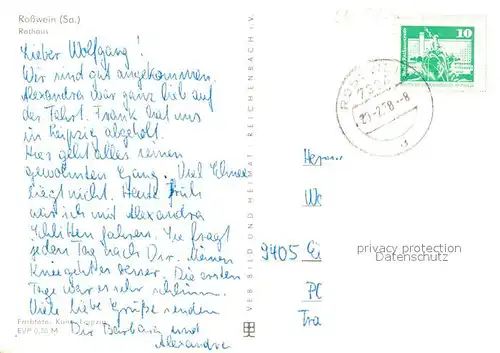 Roßwein (Sa.)
Rathaus
Lieber Wolfgang!
Wir sind gut angekommen.
Alexandra war ganz lieb auf
der Fahrt. Frank hat uns
in Leipzig abgeholt.
Hier geht alles seinen
gewohnten Gang. Viel Schnee
liegt nicht. Heute früh
war ich mit Alexandra
Schlitten fahren. Sie fragt
jeden Tag nach Dir. Meinen
Knie geht es besser. Die ersten
Tage war es sehr schlimm.
Viele liebe Grüße senden
Dir Barbara und
Alexandra
Farbfoto: Leipzig
EVP 0,20 M
VEB BILD UND HEIMAT REICHENBACH i. V.
10
Herrn
9405
privacy protection
Datenschutz